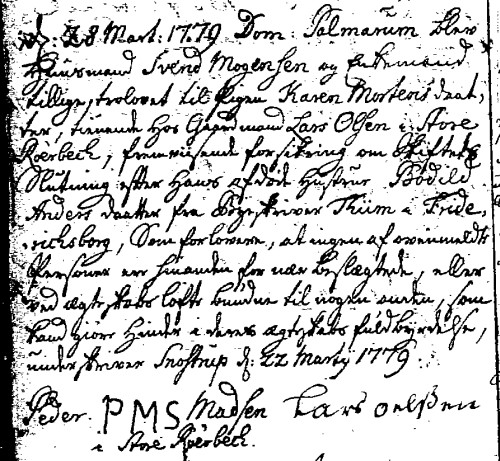 d. 28 Mart: 1779 Dom. Palmarum blev
Huusmand Svend Mogensen og Enkemand
tillige, trolovet til Pigen Karen Mortens daat,
ter, tienende hos Gaardmand Lars Olsen i Store
Röerbeck, fremviisende forsikring om Skiftets
Slutning efter hans afdöde Hustrue Bodild
Anders daatter fra Skriver Thiim i Fride,
richsborg, Som forlovere, at ingen af ovenmeldte
Personer ere hinanden for nær beslægtede, eller
ved ægteskabs löfte bundne til nogen anden, som
kand giöre Hinder i deres ægteskabs fuldbyrdelse,
underskriver Snostrup d: 22 Martÿ 1779
Peder PMS Madsen Lars oelsen
i Store Röerbeck.